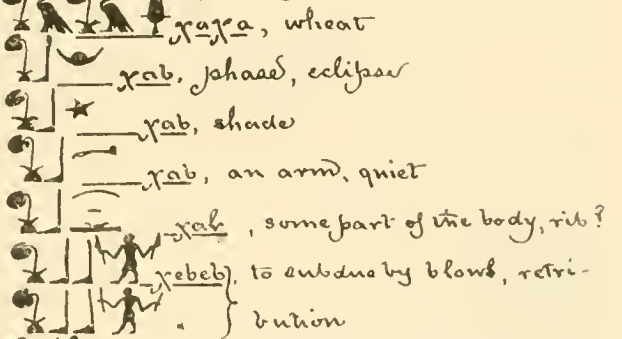 χaχa, wheat
χab, phase, eclipse
χab, shade
χab, an arm, quiet
χab, some part of the body, rib?
χebeb, to subdue by blows, retri-
bution